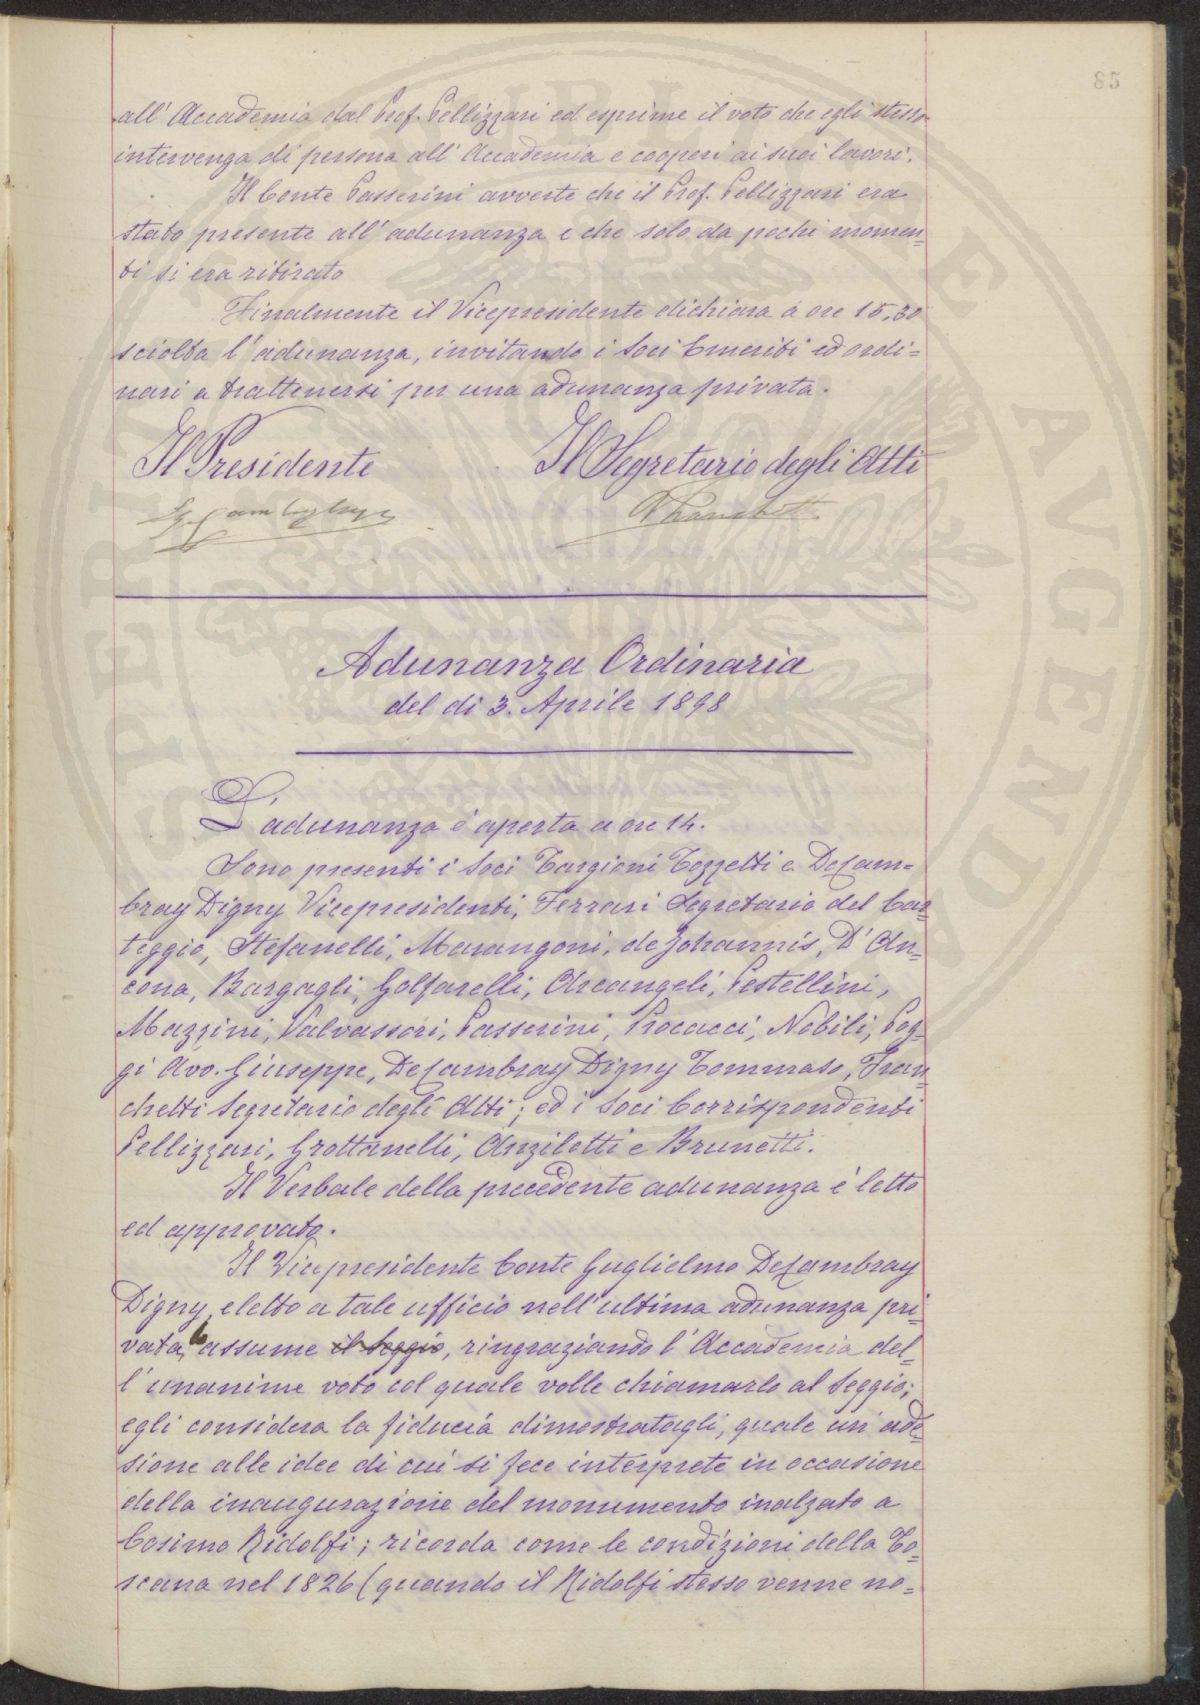 85
all' Accademia dal Prof. Pellizzari ed esprime il voto che egli stesso
intervenga di persona all' Accademia e cooperi ai suoi lavori.
Il Conte Passerini avverte che il Prof. Pellizzari era
stato presente all' adunanza e che solo da pochi momen=
ti si era ritirato
Finalmente il Vicepresidente dichiara a ore 15,30
sciolta l' adunanza, invitando i Soci Emeriti ed ordi=
nari a trattenersi per una adunanza privata.
Il Presidente Il Segretario degli Atti
Adunanza Ordinaria
del di 3. Aprile 1898
L' adunanza é aperta a ore 14.
Sono presenti i Soci Targioni Tozzetti e DeCam=
bray Digny Vicepresidenti, Ferrari Segretario del Car=
teggio, Stefanelli, Marangoni, de Johannis, D' An=
cona, Bargagli, Golfarelli, Arcangeli, Pestellini,
Mazzini, Valvassori, Passerini, Procacci, Nobili, Pog=
gi Avv. Giuseppe, DeCambray Digny Tommaso, Fran=
chetti Segretario degli Atti; ed i Soci Corrispondenti
Pellizzari, Grottanelli, Anziletti e Brunetti.
Il Verbale della precedente adunanza é letto
ed approvato.
Il Vicepresidente Conte Guglielmo DeCambray
Digny, eletto a tale ufficio nell' ultima adunanza pri=
vata, lo assume il seggio, ringraziando l' Accademia del=
l' unanime voto col quale volle chiamarlo al Seggio;
egli considera la fiducia dimostratagli, quale un' ade=
sione alle idee di cui si fece interprete in occasione
della inaugurazione del monumento inalzato a
Cosimo Ridolfi; ricorda come le condizioni della To=
scana nel 1826 (quando il Ridolfi stesso venne no=
SPERIN
AVGENDA